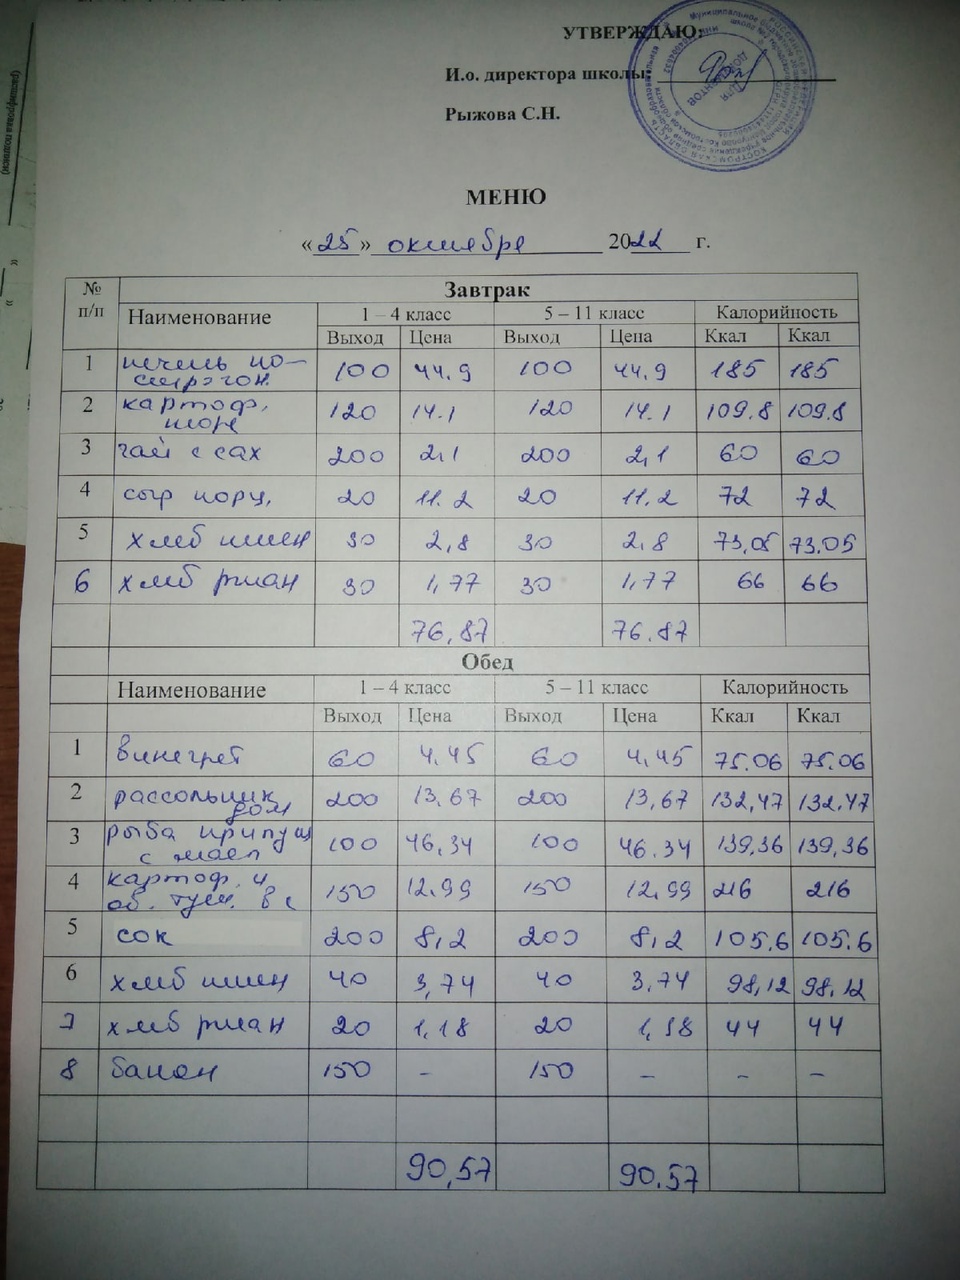 УТВЕРЖДАЮ:
И.о. директора школы:
Рыжова С.Н.
МЕНЮ
«25» октября 2022 г.
№ п/п Завтрак
Наименование 1 – 4 класс 5 – 11 класс Калорийность
Выход Цена Выход Цена Ккал Ккал
1 печень по-строгон. 100 44.9 100 44.9 185 185
2 картоф. пюре 120 14.1 120 14.1 109.8 109.8
3 чай с сах 200 2,1 200 2,1 60 60
4 сыр порц. 20 11.2 20 11.2 72 72
5 хлеб пшен 30 2,8 30 2.8 73,05 73.05
6 хлеб ржан 30 1,77 30 1,77 66 66
76,87 76.87
Обед
Наименование 1 – 4 класс 5 – 11 класс Калорийность
Выход Цена Выход Цена Ккал Ккал
1 винегрет 60 4,45 60 4,45 75.06 75.06
2 рассольник дом 200 13,67 200 13,67 132,47 132.47
3 рыба припущ с масл 100 46,34 100 46.34 139,36 139,36
4 картоф. и об. туш. в с 150 12.99 150 12,99 216 216
5 сок 200 8,2 200 8,2 105,6 105.6
6 хлеб пшен 40 3,74 40 3.74 98,12 98,12
7 хлеб ржан 20 1,18 20 1,18 44 44
8 банан 150 – 150 – – –
90,57 90.57